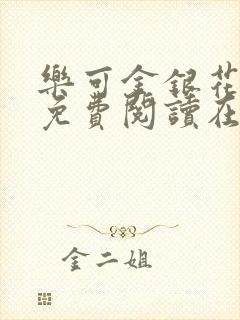 樂可金銀花
免費閱讀在
金二姐